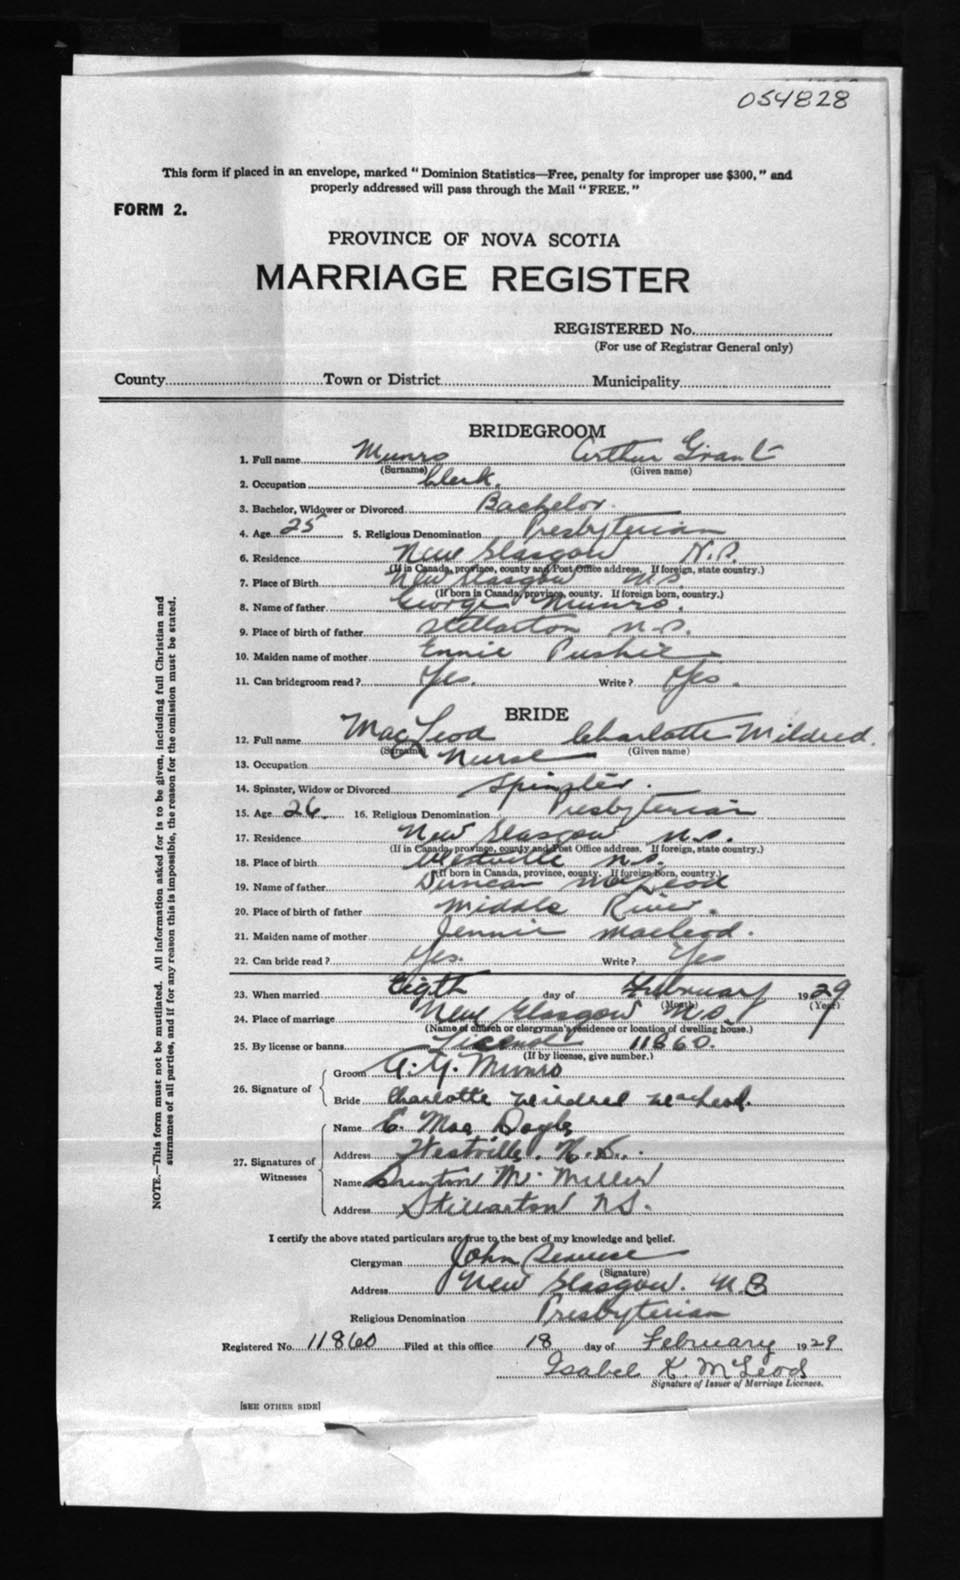 054828
This form if placed in an envelope, marked "Dominion Statistics—Free, penalty for improper use $300," and
properly addressed will pass through the Mail "FREE."
FORM 2.
PROVINCE OF NOVA SCOTIA
MARRIAGE REGISTER
REGISTERED No.
(For use of Registrar General only)
County Town or District Municipality
BRIDEGROOM
1. Full name Munro Arthur Grant
(Surname) (Given name)
2. Occupation Clerk.
3. Bachelor, Widower or Divorced Bachelor.
4. Age 25 5. Religious Denomination Presbyterian
6. Residence New Glasgow N.S.
(If in Canada, province, county and Post Office address. If foreign, state country.)
7. Place of Birth New Glasgow N.S.
(If born in Canada, province, county. If foreign born, country.)
8. Name of father George Munro.
9. Place of birth of father Stellarton N.S.
10. Maiden name of mother Ennie
11. Can bridegroom read? Yes. Write? Yes.
BRIDE
12. Full name MacLeod Charlotte Mildred.
(Surname) (Given name)
13. Occupation Nurse
14. Spinster, Widow or Divorced Spinster.
15. Age 26. 16. Religious Denomination Presbyterian
17. Residence New Glasgow N.S.
(If in Canada, province, county and Post Office address. If foreign, state country.)
18. Place of birth Westville N.S.
(If born in Canada, province, county. If foreign born, country.)
19. Name of father Duncan McLeod
20. Place of birth of father Middle River.
21. Maiden name of mother Jennie MacLeod.
22. Can bride read? Yes. Write? Yes
23. When married Eigth day of February 1929
(Month) (Year)
24. Place of marriage New Glasgow N.S.
(Name of church or clergyman's residence or location of dwelling house.)
25. By license or banns License 11860.
(If by license, give number.)
26. Signature of
Groom A. G. Munro
Bride Charlotte Mildred MacLeod.
27. Signatures of Witnesses
Name E. Mae Doyle
Address Westville. N.S.
Name M. Miller
Address Stellarton NS.
I certify the above stated particulars are true to the best of my knowledge and belief.
Clergyman John
(Signature)
Address New Glasgow. N.S
Religious Denomination Presbyterian
Registered No. 11860 Filed at this office 18 day of February 1929
Isabel K. McLeod
Signature of Issuer of Marriage Licenses.
[SEE OTHER SIDE]
NOTE.—This form must not be mutilated. All information asked for is to be given, including full Christian and
surnames of all parties, and if for any reason this is impossible, the reason for the omission must be stated.